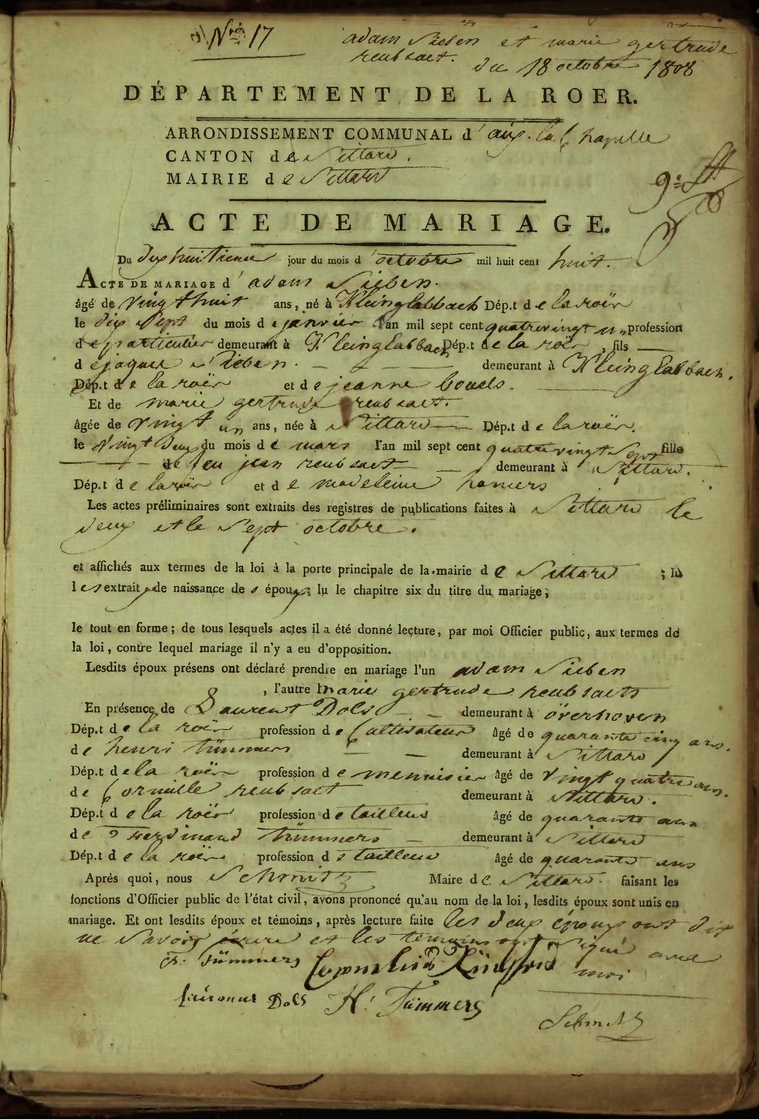 Nro 17 adam Sieben et marie gertrude
reubsaet. du 18 octobre 1808
DÉPARTEMENT DE LA ROER.
ARRONDISSEMENT COMMUNAL d'aix-la Chapelle
CANTON de Sittard.
MAIRIE de Sittard
ACTE DE MARIAGE.
Du dixhuitieme jour du mois d'octobre mil huit cent huit.
ACTE DE MARIAGE d'adam Sieben.
âgé de vingt huit ans, né à Kleinglabbach Dép.t de la roër
le dix Sept du mois de janvier l'an mil sept cent quatrevingt profession
de particulier demeurant à Kleinglabbach Dép.t de la roër, fils
de jaques Sieben. demeurant à Kleinglabbach.
Dép.t de la roër et de jeanne bouels.
Et de marie gertrude reubsaet.
âgée de vingt un ans, née à Sittard Dép.t de la roër.
le vingt deux du mois de mars l'an mil sept cent quatrevingt Sept fille
de feu jean reubsaet demeurant à Sittard.
Dép.t de la roër et de madeleine hamers
Les actes préliminaires sont extraits des registres de publications faites à Sittard le
deux et le Sept octobre.
et affichés aux termes de la loi à la porte principale de la mairie de Sittard ; lu
les extraits de naissance des époux; lu le chapitre six du titre du mariage;
le tout en forme; de tous lesquels actes il a été donné lecture, par moi Officier public, aux termes de
la loi, contre lequel mariage il n'y a eu d'opposition.
Lesdits époux présens ont déclaré prendre en mariage l'un adam Sieben
, l'autre marie gertrude reubsaets
En présence de Laurent Dols demeurant à överhoven
Dép.t de la roër profession de Cultivateur âgé de quarante cinq ans.
de henri tümmers demeurant à Sittard
Dép.t de la roër profession de mennisier âgé de vingt quatre ans.
de Corneille reubsaet demeurant à Sittard.
Dép.t de la roër profession de tailleur âgé de quarante ans
de ferdinand tümmers demeurant à Sittard
Dép.t de la roër profession de tailleur âgé de quarante ans
Après quoi, nous Schmitz Maire de Sittard faisant les
fonctions d'Officier public de l'état civil, avons prononcé qu'au nom de la loi, lesdits époux sont unis en
mariage. Et ont lesdits époux et témoins, après lecture faite les deux époux ont dit
ne Savoir écrire et les temoins ont Signé avec
F. Tümmers Cornelius moi
Dols H. Tümmers
Schmitz